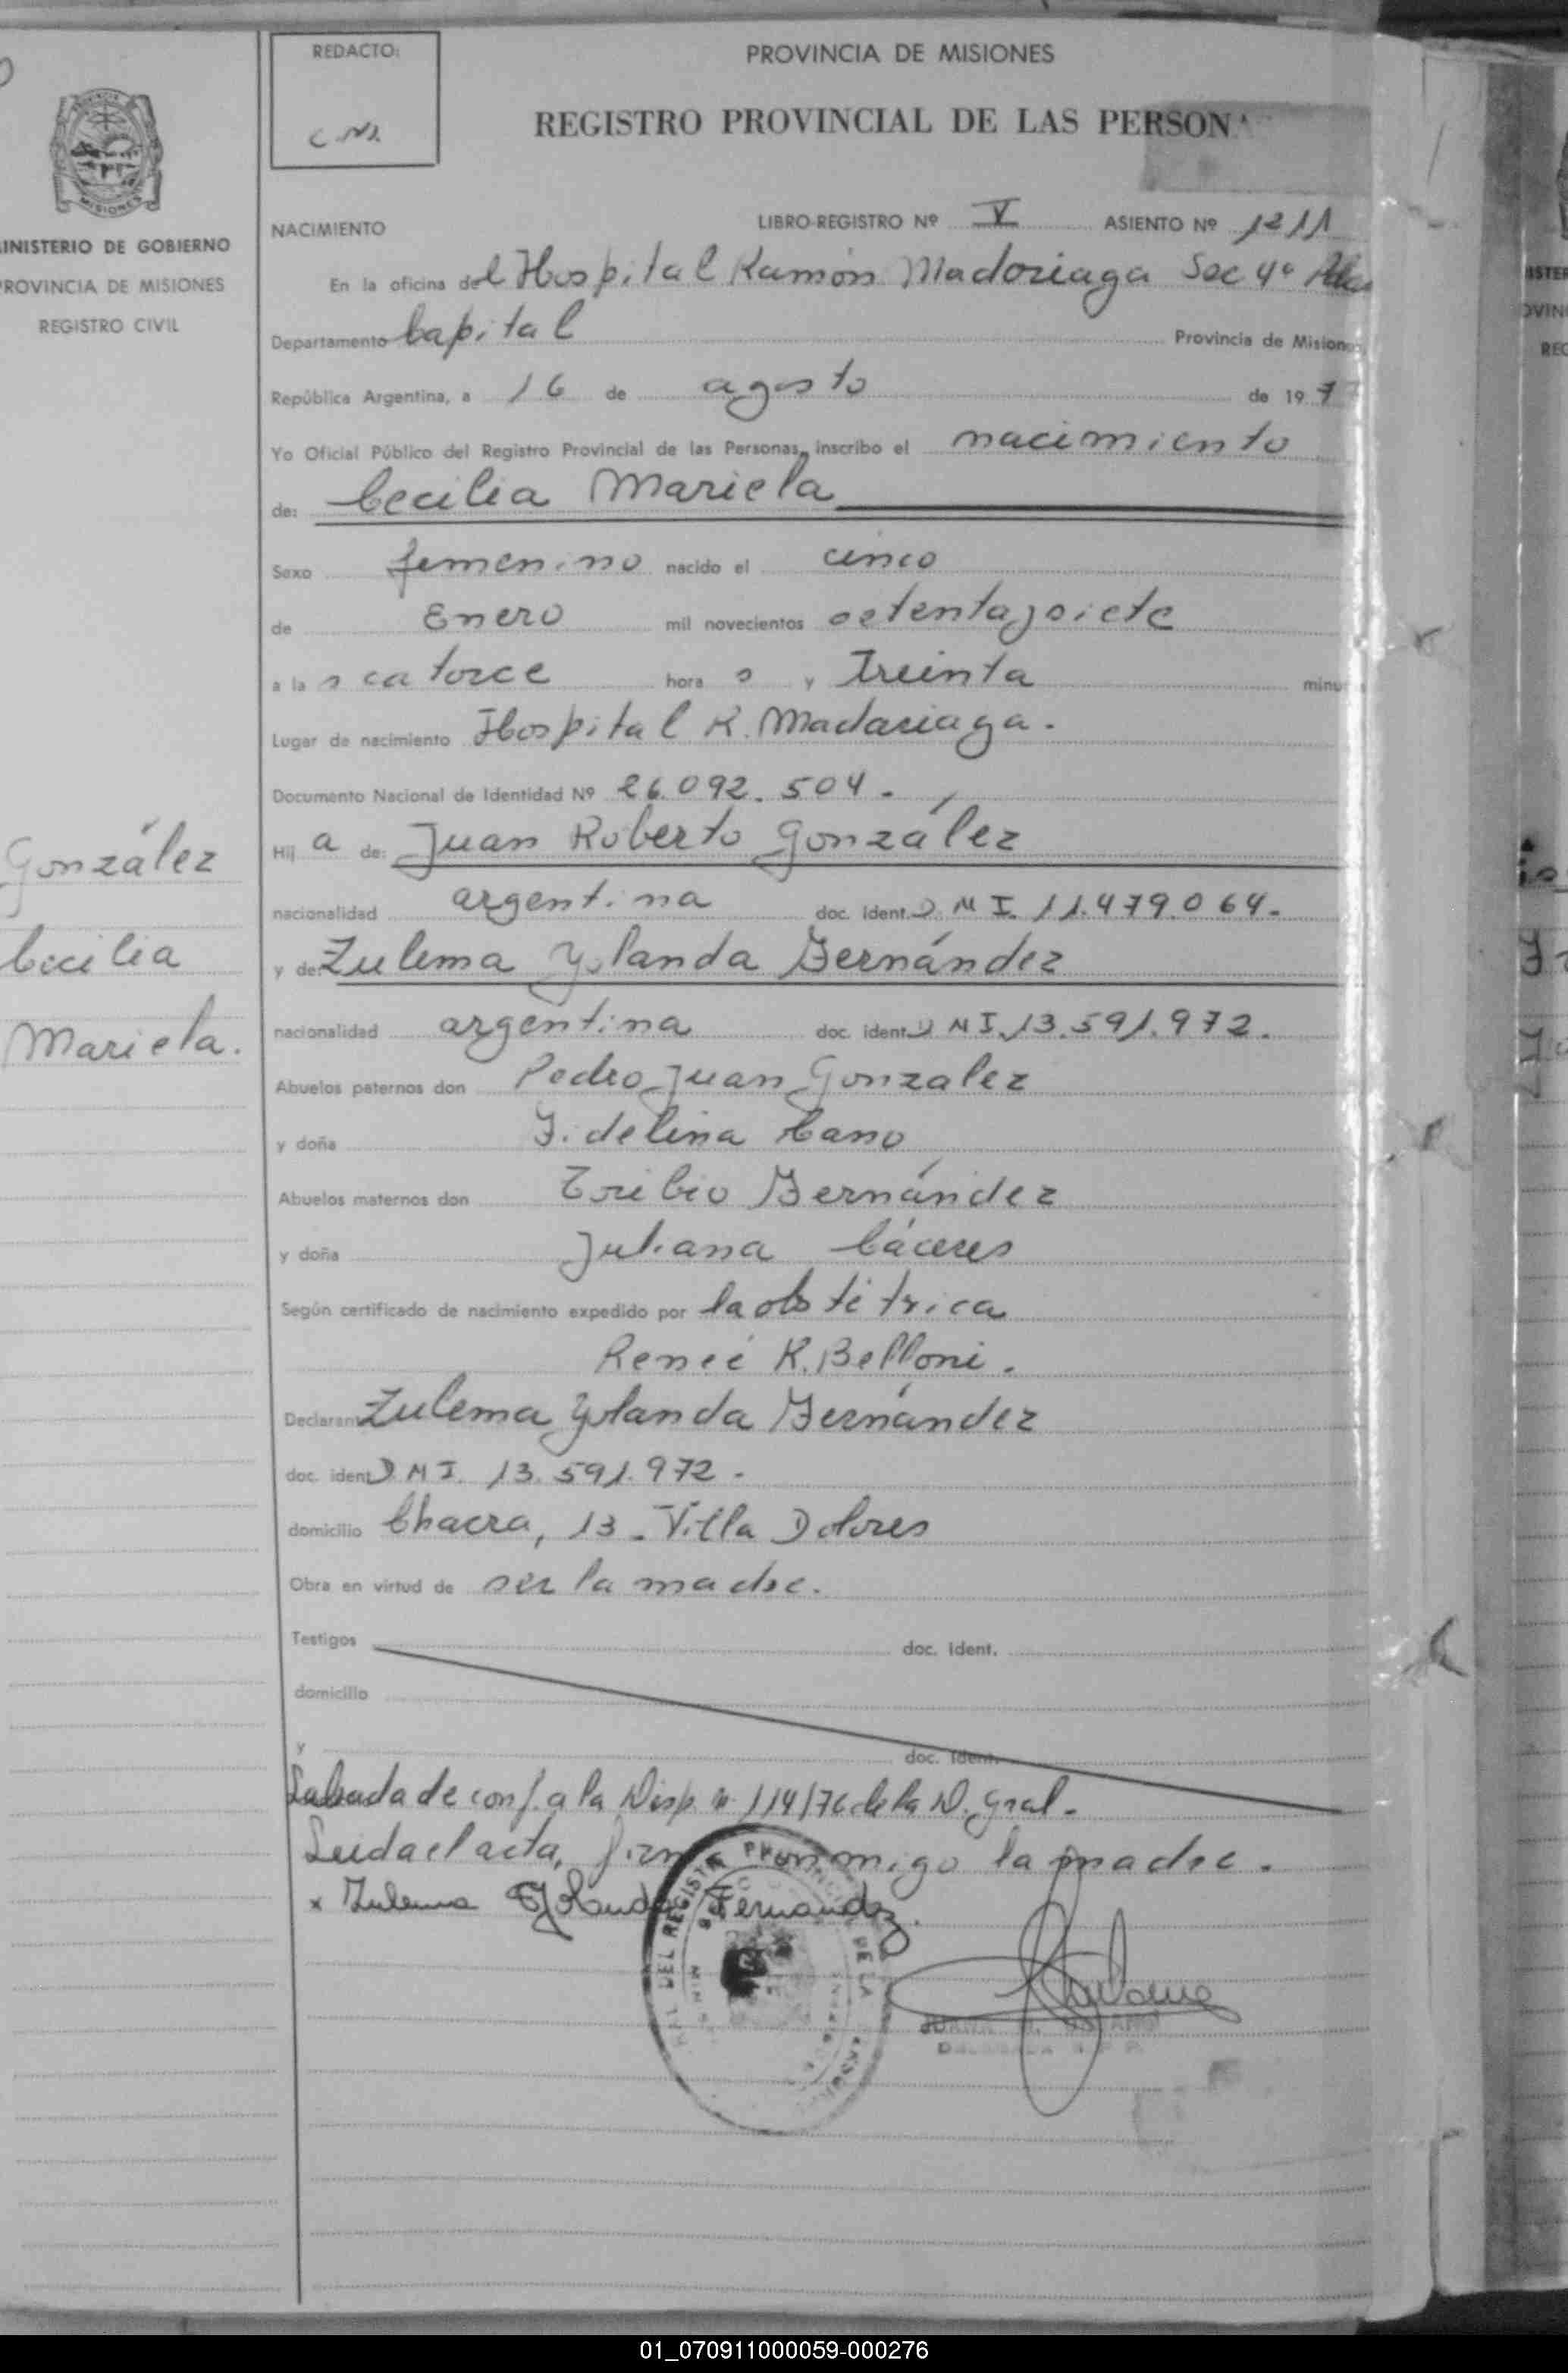 REDACTO:
C.N.
PROVINCIA DE MISIONES
REGISTRO PROVINCIAL DE LAS PERSON
MINISTERIO DE GOBIERNO
PROVINCIA DE MISIONES
REGISTRO CIVIL
NACIMIENTO LIBRO-REGISTRO Nº V ASIENTO Nº 1211
En la oficina del Hospital Ramón Madoriaga Sec 4ª
Departamento Capital Provincia de Misiones
República Argentina, a 16 de agosto de 197
Yo Oficial Público del Registro Provincial de las Personas, inscribo el nacimiento
de: Cecilia Mariela
Sexo femenino nacido el cinco
de Enero mil novecientos setenta y siete
a las catorce horas y Treinta minu
Lugar de nacimiento Hospital R. Madariaga.
Documento Nacional de Identidad Nº 26.092.504.
Hija de: Juan Roberto González
nacionalidad argentina doc. ident. D.N.I. 11.479.064.
y de: Zulema Yolanda Fernández
nacionalidad argentina doc. ident. D.N.I. 13.591.972.
Abuelos paternos don Pedro Juan Gonzalez
y doña Fidelina Cano
Abuelos maternos don Toribio Fernández
y doña Juliana Cáceres
Según certificado de nacimiento expedido por la obstétrica
Reneé R. Belloni.
Declarant Zulema Yolanda Fernández
doc. ident D.N.I. 13.591.972.
domicilio Chacra, 13 - Villa Dolores
Obra en virtud de ser la madre.
Testigos doc. ident.
domicilio
y doc. ident.
Labrada de conf. a la Disp. nº 114/76 de la D. Gral.
Leida el acta, firma conmigo la madre.
x Zulema Yolanda Fernandez.
DEL REGISTR PROVINCIAL DE LA
González
Cecilia
Mariela.
01_070911000059-000276